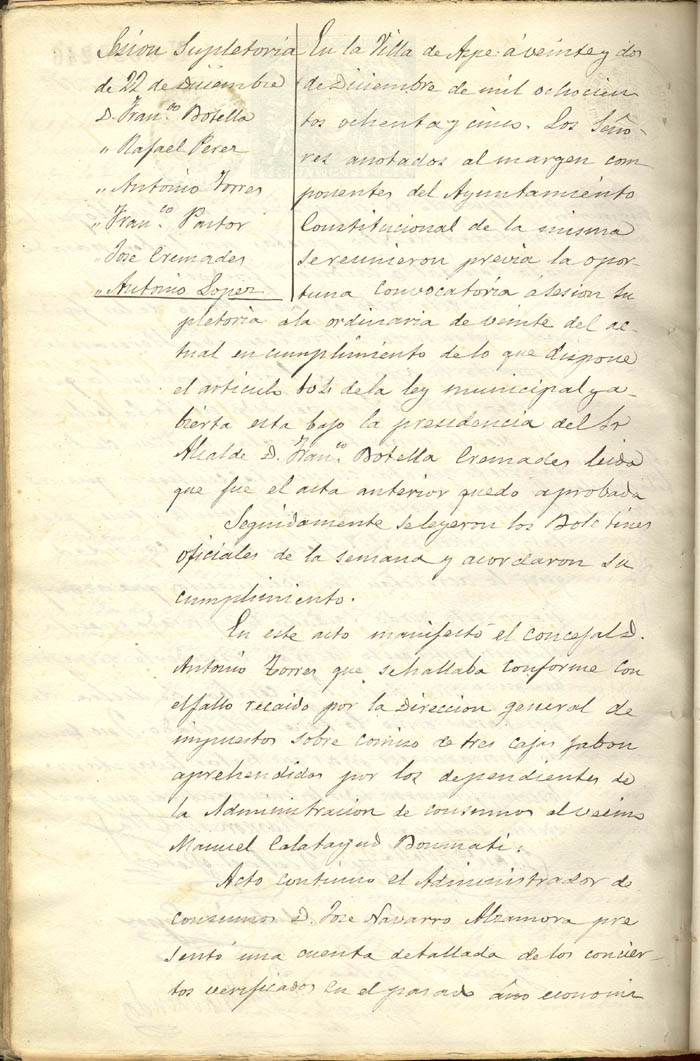 Sesion Supletoria
de 22 de Diciembre
D. Fran.co Botella
" Rafael Perez
" Antonio Torres
" Fran.co Pastor
" Jose Cremades
" Antonio Lopez
En la Villa de Aspe á veinte y dos
de Diciembre de mil ochocien
tos ochenta y cinco. Los Seño-
res anotados al margen com
ponentes del Ayuntamiento
Constitucional de la misma
se reunieron previa la opor-
tuna convocatoria á sesion su
pletoria á la ordinaria de veinte del ac-
tual en cumplimiento de lo que dispone
el articulo 104 de la ley municipal y a-
bierta esta bajo la presidencia del Sr
Alcalde D. Fran.co Botella Cremades leida
que fue el acta anterior quedo aprobada
Seguidamente se leyeron los Boletines
oficiales de la semana y acordaron su
cumplimiento.
En este acto manifestó el concejal D.
Antonio Torres que se hallaba conforme con
el fallo recaido por la Direccion general de
impuestos sobre comiso de tres cajas jabon
aprehendidas por los dependientes de
la Administracion de consumos al vecino
Manuel Calatayud Bonmati.
Acto continuo el Administrador de
consumos D. Jose Navarro Alzamora pre
sentó una cuenta detallada de los concier-
tos verificados en el pasado año economi